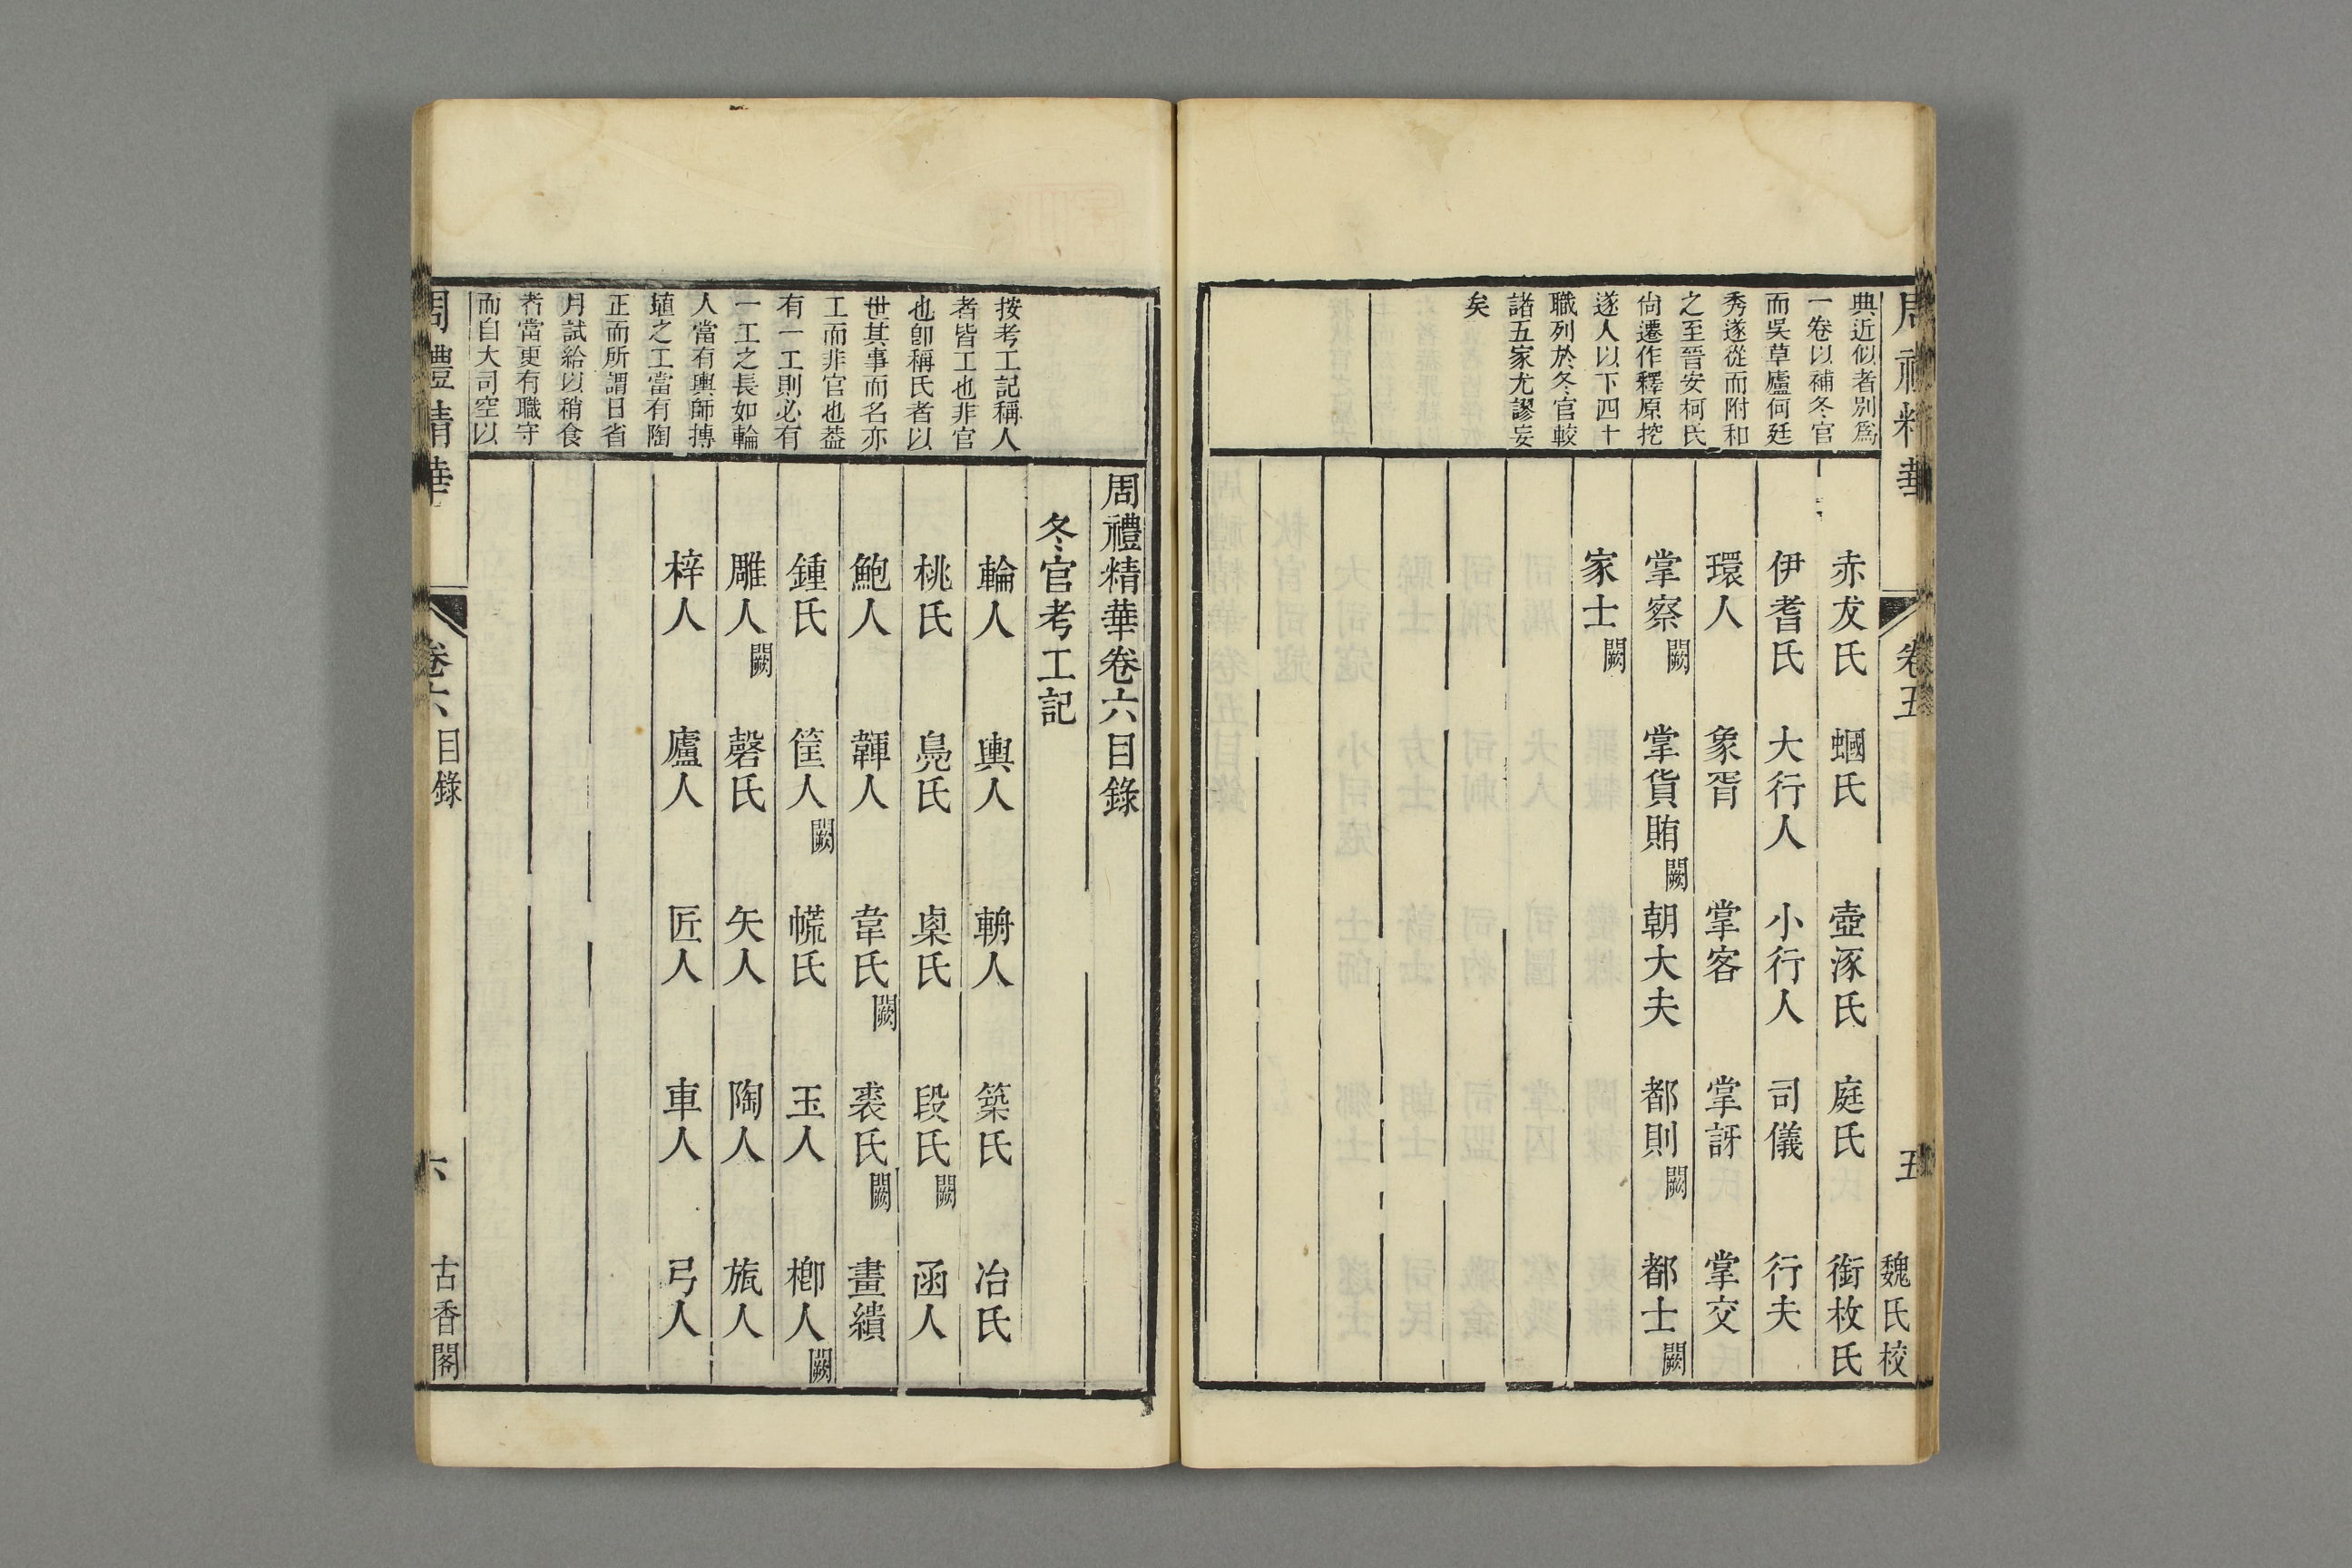 周禮精華 卷五 五 魏氏校
典近似者別爲
一卷以補冬官
而吳草廬何廷
秀遂從而附和
之至晉安柯氏
尙遷作釋原挖
遂人以下四十
職列於冬官較
諸五家尤謬妄
矣
赤犮氏 蟈氏 壺涿氏 庭氏 銜枚氏
伊耆氏 大行人 小行人 司儀 行夫
環人 象胥 掌客 掌訝 掌交
掌察闕 掌貨賄闕 朝大夫 都則闕 都士闕
家士闕
按考工記稱人
者皆工也非官
也卽稱氏者以
世其事而名亦
工而非官也葢
有一工則必有
一工之長如輪
人當有輿師摶
埴之工當有陶
正而所謂日省
月試給以稍食
者當更有職守
而自大司空以
周禮精華卷六目錄
冬官考工記
輪人 輿人 輈人 築氏 冶氏
桃氏 鳧氏 㮚氏 段氏闕 函人
鮑人 韗人 韋氏闕 裘氏闕 畫繢
鍾氏 筐人闕 㡛氏 玉人 楖人闕
雕人闕 磬氏 矢人 陶人 旊人
梓人 廬人 匠人 車人 弓人
周禮精華 卷六目錄 六 古香閣